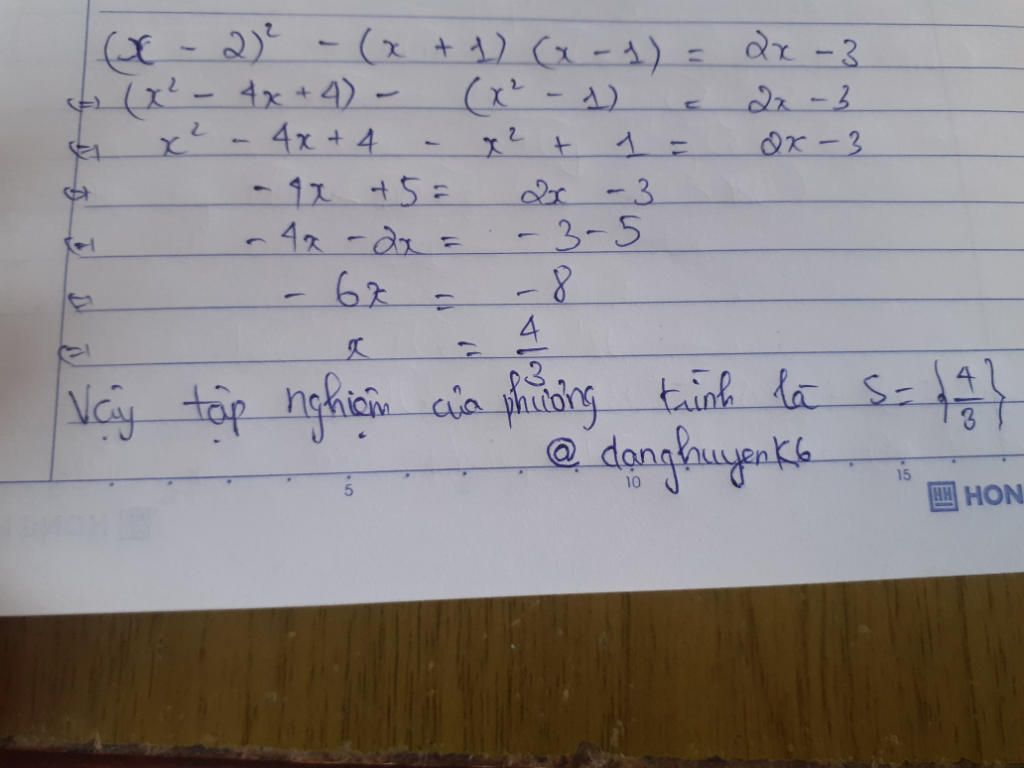 (x - 2)² - (x + 1) (x - 1) = 2x - 3
⇔ (x² - 4x + 4) - (x² - 1) = 2x - 3
⇔ x² - 4x + 4 - x² + 1 = 2x - 3
⇔ - 4x + 5 = 2x - 3
⇔ - 4x - 2x = - 3 - 5
⇔ - 6x = - 8
⇔ x = 4/3
Vậy tập nghiệm của phương trình là S = {4/3}
@ danghuyenK6
5 10 15
HON